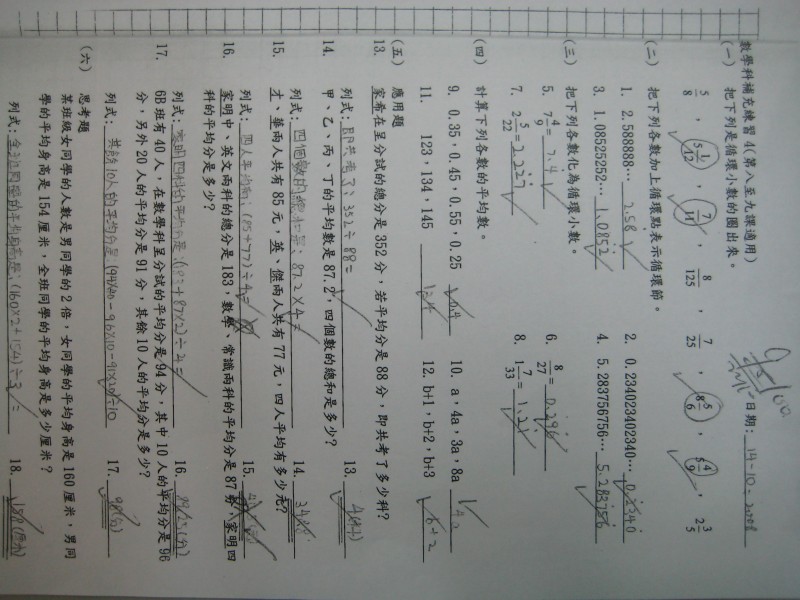 數學科補充練習 4(第八至九課適用) 日期: 14-10-2008
(一) 把下列是循環小數的圈出來。
5/8 , 5 1/12 , 7/11 , 8/125 , 7/25 , 8 5/6 , 5 4/9 , 2 3/5
(二) 把下列各數加上循環點表示循環節。
1. 2.588888… 2.58 2. 0.234023402340… 0.2340
3. 1.08525252… 1.0852 4. 5.283756756… 5.283756
(三) 把下列各數化為循環小數。
5. 7 4/9 = 7.4 6. 8/27 = 0.296
7. 2 5/22 = 2.227 8. 1 7/33 = 1.21
(四) 計算下列各數的平均數。
9. 0.35,0.45,0.55,0.25 0.4 10. a,4a,3a,8a 4a
11. 123,134,145 134 12. b+1,b+2,b+3 b+2
(五) 應用題
13. 家希在呈分試的總分是 352 分,若平均分是 88 分,即共考了多少科?
列式: 即共考了:352÷88= 13. 4(科)
14. 甲、乙、丙、丁的平均數是 87.2,四個數的總和是多少?
列式: 四個數的總和是:87.2×4= 14. 348.8
15. 才、華兩人共有 85 元,英、傑兩人共有 77 元,四人平均有多少元?
列式: 四人平均有:(85+77)÷4= 15.
16. 家明中、英文兩科的總分是 183,數學、常識兩科的平均分是 87 分,家明四
科的平均分是多少?
列式: 家明四科的平均分是:(183+87×2)÷4= 16. 89.25(分)
17. 6B 班有 40 人,在數學科呈分試的平均分是 94 分,其中 10 人的平均分是 96
分,另外 20 人的平均分是 91 分,其餘 10 人的平均分是多少?
列式: 其餘10人的平均分是:(94×40-96×10-91×20)÷10 17. 98(分)
(六) 思考題
某班級女同學的人數是男同學的 2 倍,女同學的平均身高是 160 厘米,男同
學的平均身高是 154 厘米,全班同學的平均身高是多少厘米?
列式: 全班同學的平均身高是:(160×2+154)÷3= 18. 158(厘米)